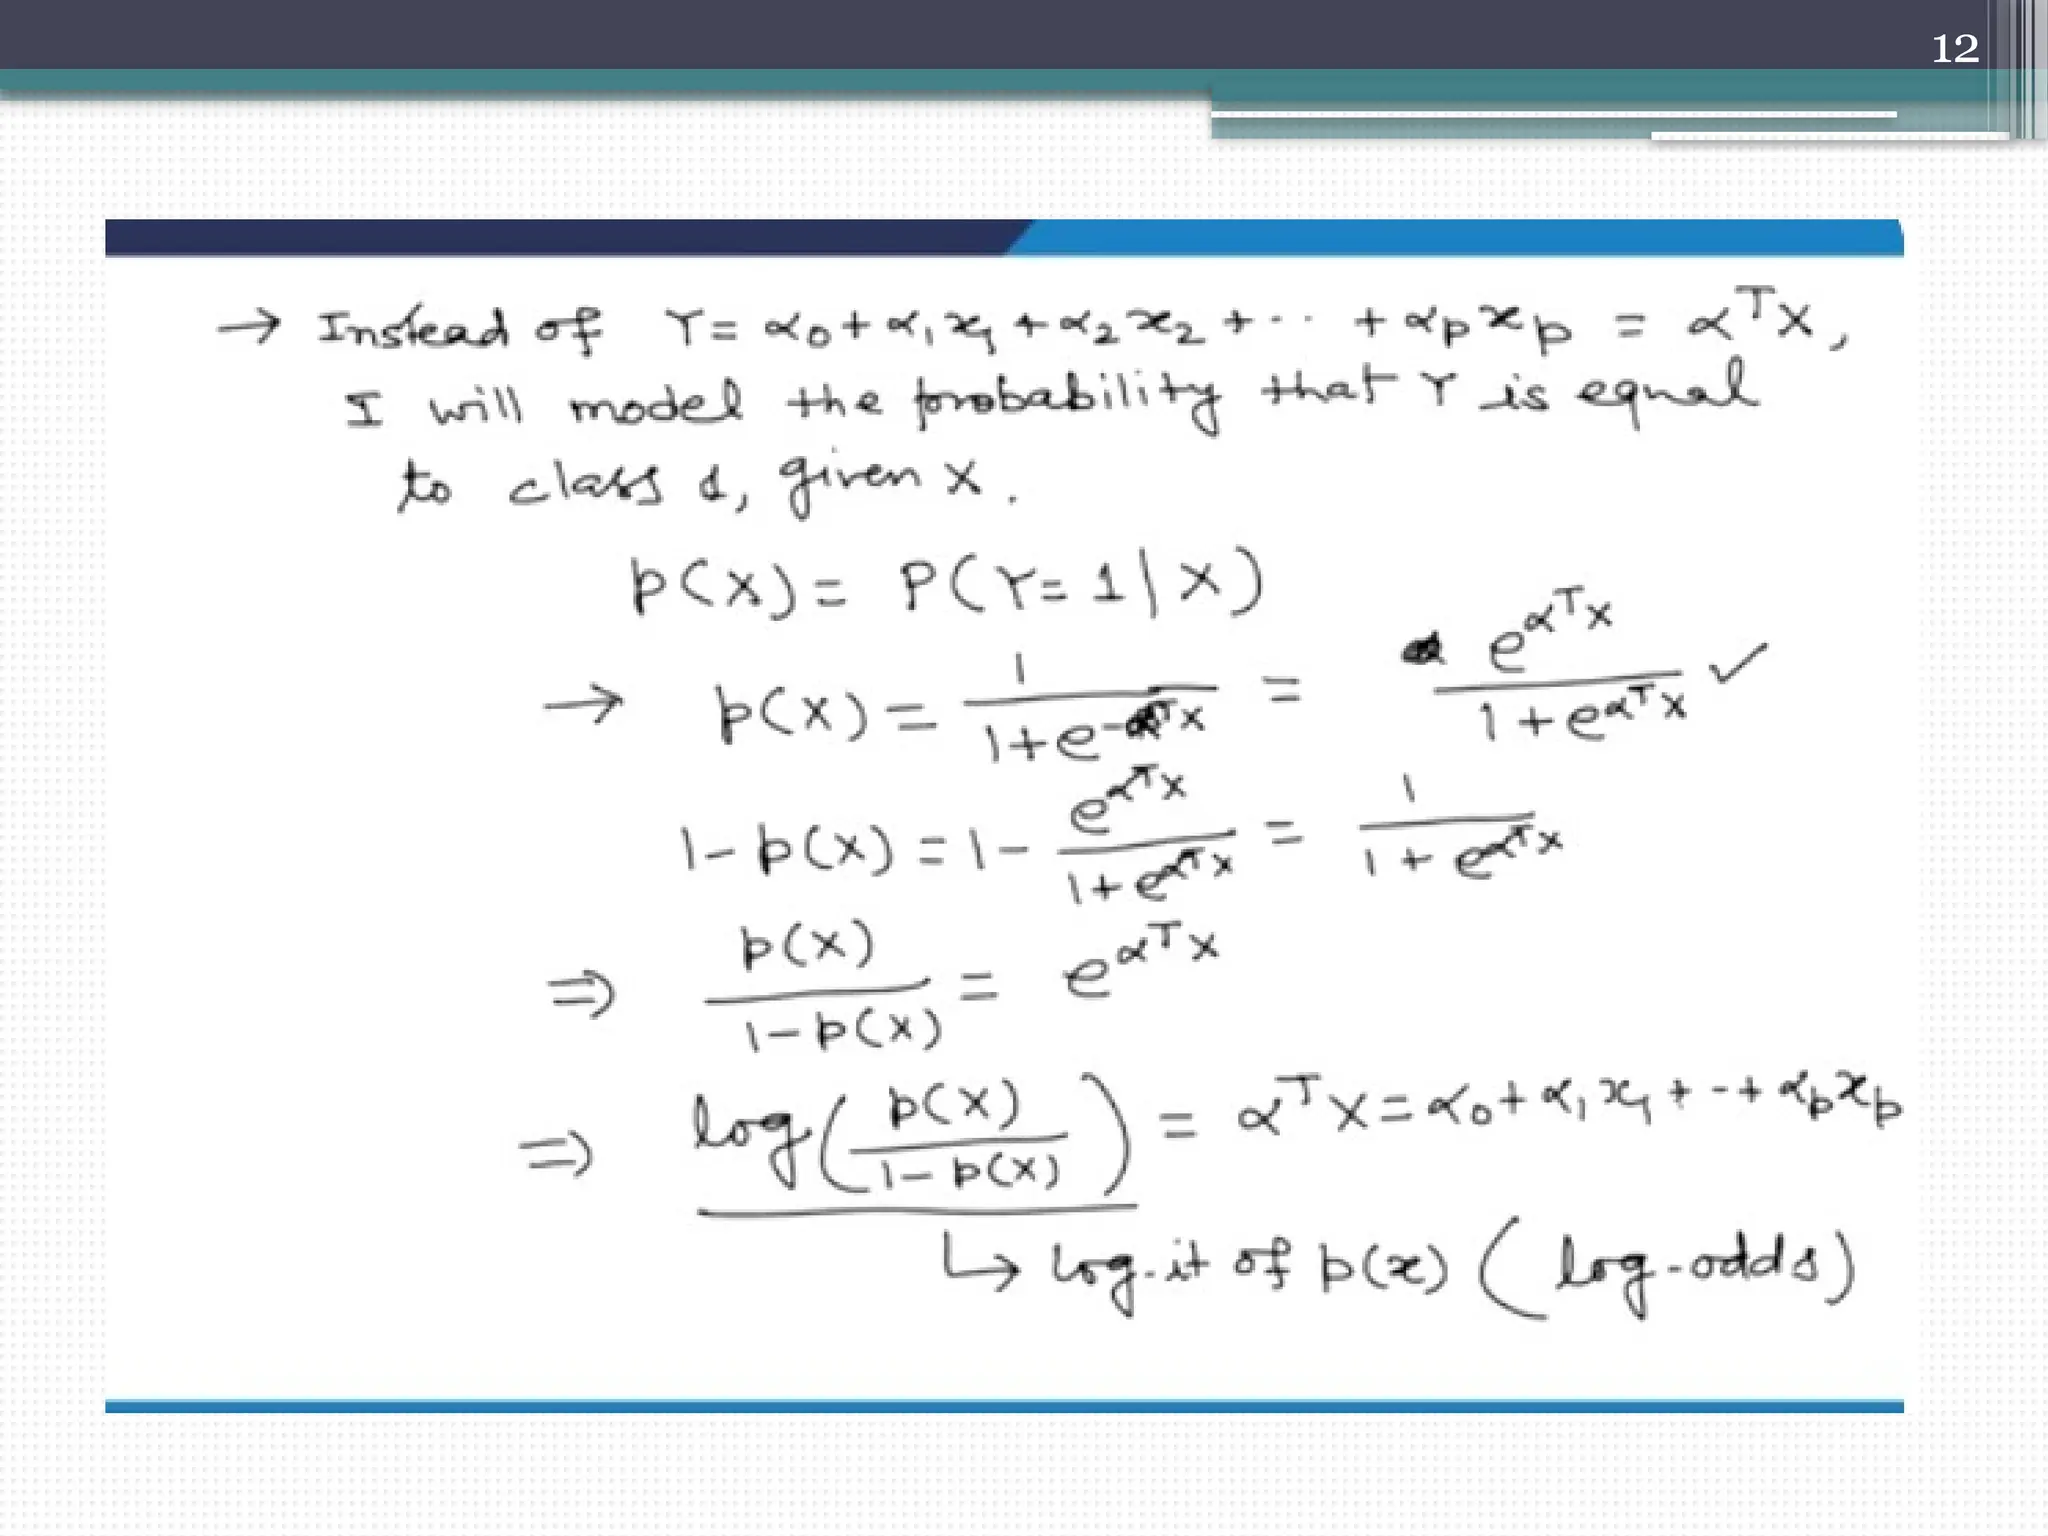 12
→ Instead of Y = α₀ + α₁x₁ + α₂x₂ + ·· + αₚxₚ = αᵀX,
I will model the probability that Y is equal
to class 1, given X.
p(X) = P(Y=1|X)
→ p(X) = 1/(1+e^(-αᵀX)) = e^(αᵀX)/(1+e^(αᵀX)) ✓
1-p(X) = 1 - e^(αᵀX)/(1+e^(αᵀX)) = 1/(1+e^(αᵀX))
⇒ p(X)/(1-p(X)) = e^(αᵀX)
⇒ log(p(X)/(1-p(X))) = αᵀX = α₀ + α₁x₁ + ·· + αₚxₚ
↳ log-it of p(x) (log-odds)